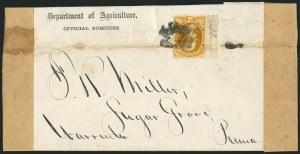 Department of Agriculture,
OFFICIAL BUSINESS
Miller,
Sugar Grove,
Warren Co Penna